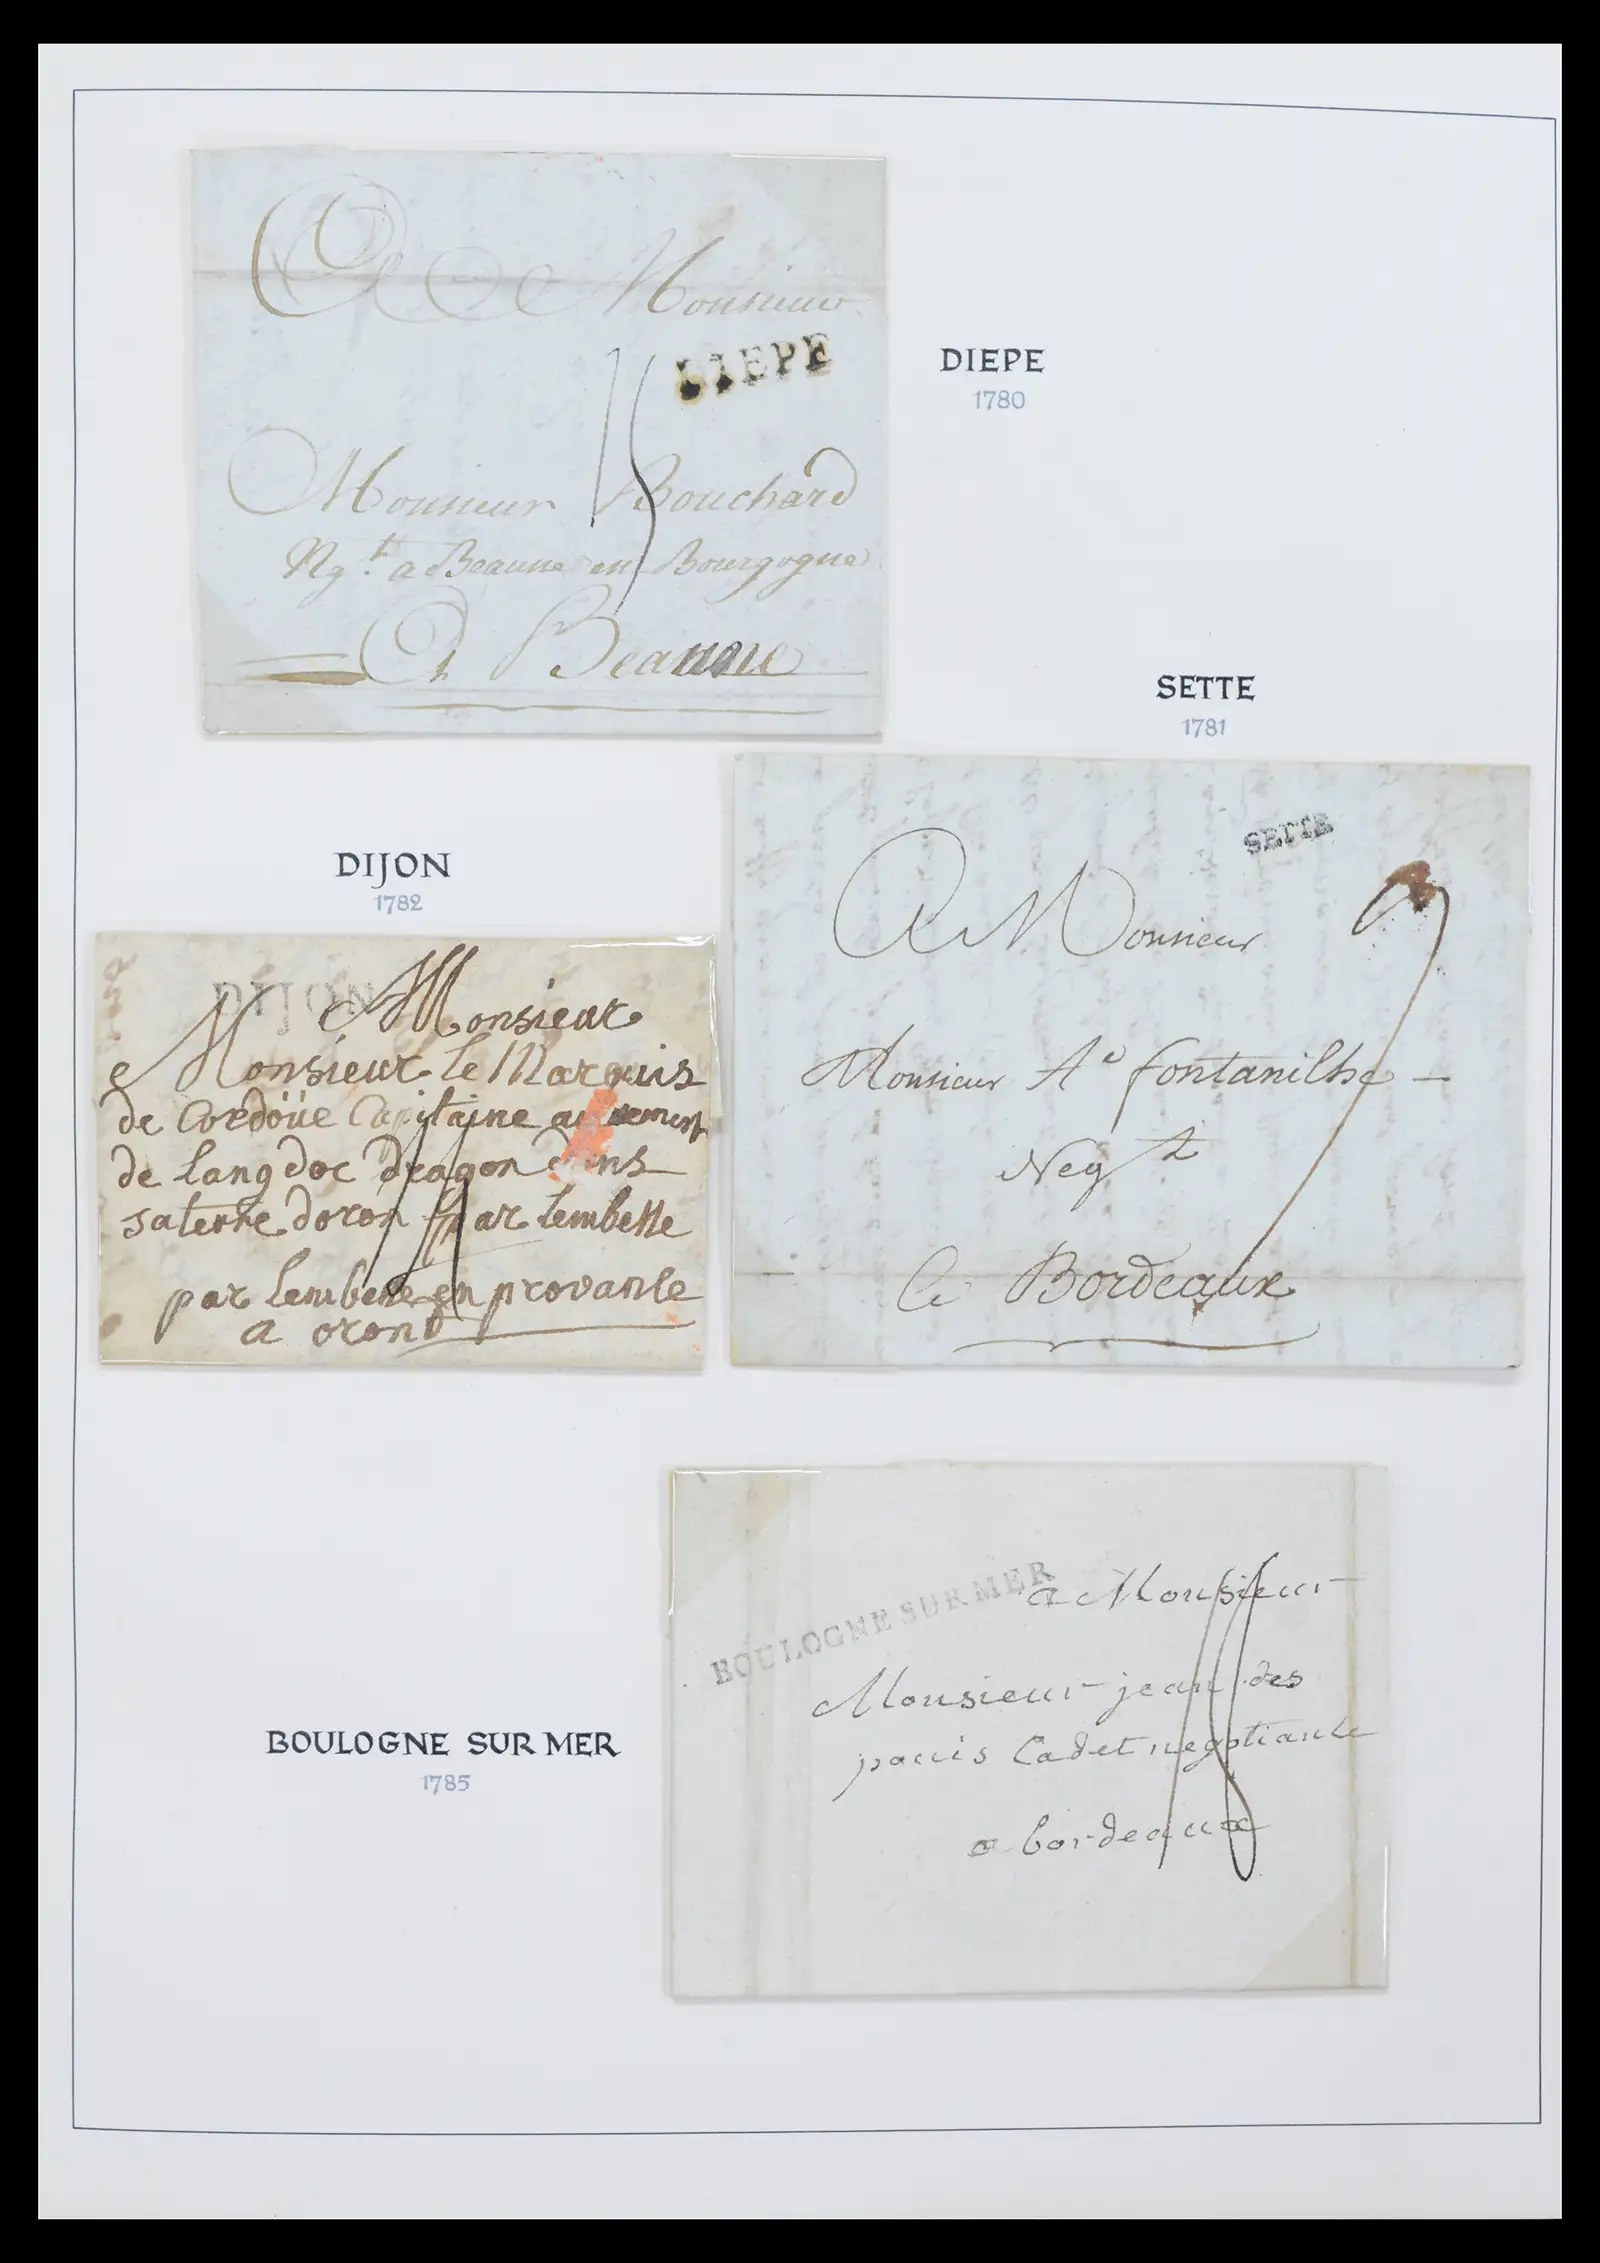 A Monsieur
DIEPE
15
Monsieur Bouchard
Ngt. a Beaune en Bourgogne
A Beaune
DIEPE
1780
SETTE
1781
SETTE
A Monsieur
Monsieur Ae fontanilhe
Negt
A Bordeaux
DIJON
1782
DIJON
A Monsieur
Monsieur le Marquis
de Cordoüe Capitaine au
de langdoc dragon dans
saterre doron par lembesse
par lembesse en provanse
a oron
BOULOGNE SUR MER
a Monsieur
Monsieur jean des
pacuis Cadet negotiante
a bordeaux
BOULOGNE SUR MER
1785